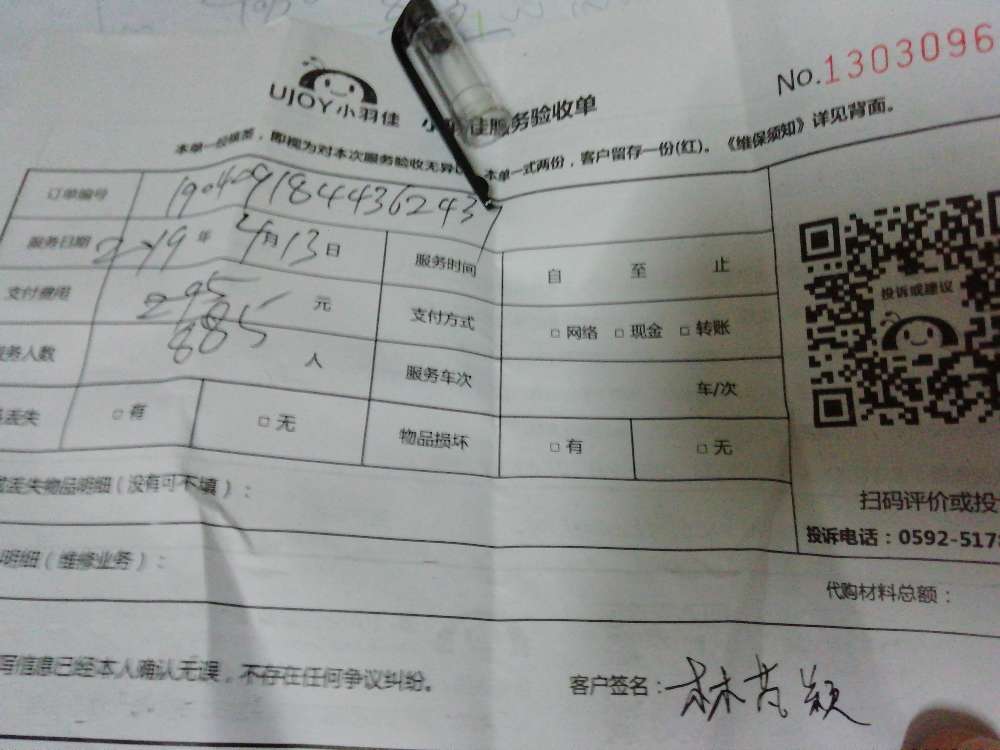 No.1303096
UJOY小羽佳
佳服务验收单
本单一经签,即视为对本次服务验收无异 本单一式两份,客户留存一份(红)。《维保须知》详见背面。
订单编号 190409184436243
服务日期 2019年4月13日 服务时间 自 至 止
支付费用 295 元 支付方式 □网络 □现金 □转账
投诉或建议
务人数 885 人 服务车次 车/次
丢失 □有 □无 物品损坏 □有 □无
丢失物品明细(没有可不填):
扫码评价或投
投诉电话:0592-517
明细(维修业务):
代购材料总额:
写信息已经本人确认无误,不存在任何争议纠纷。
客户签名:林 颖